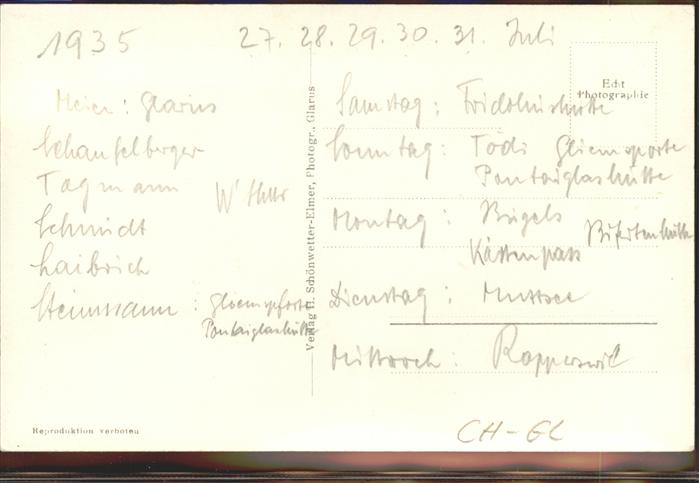 1935 27. 28. 29. 30. 31. Juli
Meier: Glarus
Schaufelberger
Tagmann W'thur
Schmidt
Laibrich
Steinmann: Gliemspforte
Pontaiglashütte
Verlag H. Schönwetter-Elmer, Photogr., Glarus
Echt
Photographie
Samstag: Fridolinshütte
Sonntag: Tödi Gliemspforte
Pontaiglashütte
Montag: Brigels Bifertenhütte
Kistenpass
Dienstag: Muttsee
Mittwoch: Rapperswil
Reproduktion verboten
CH-GL